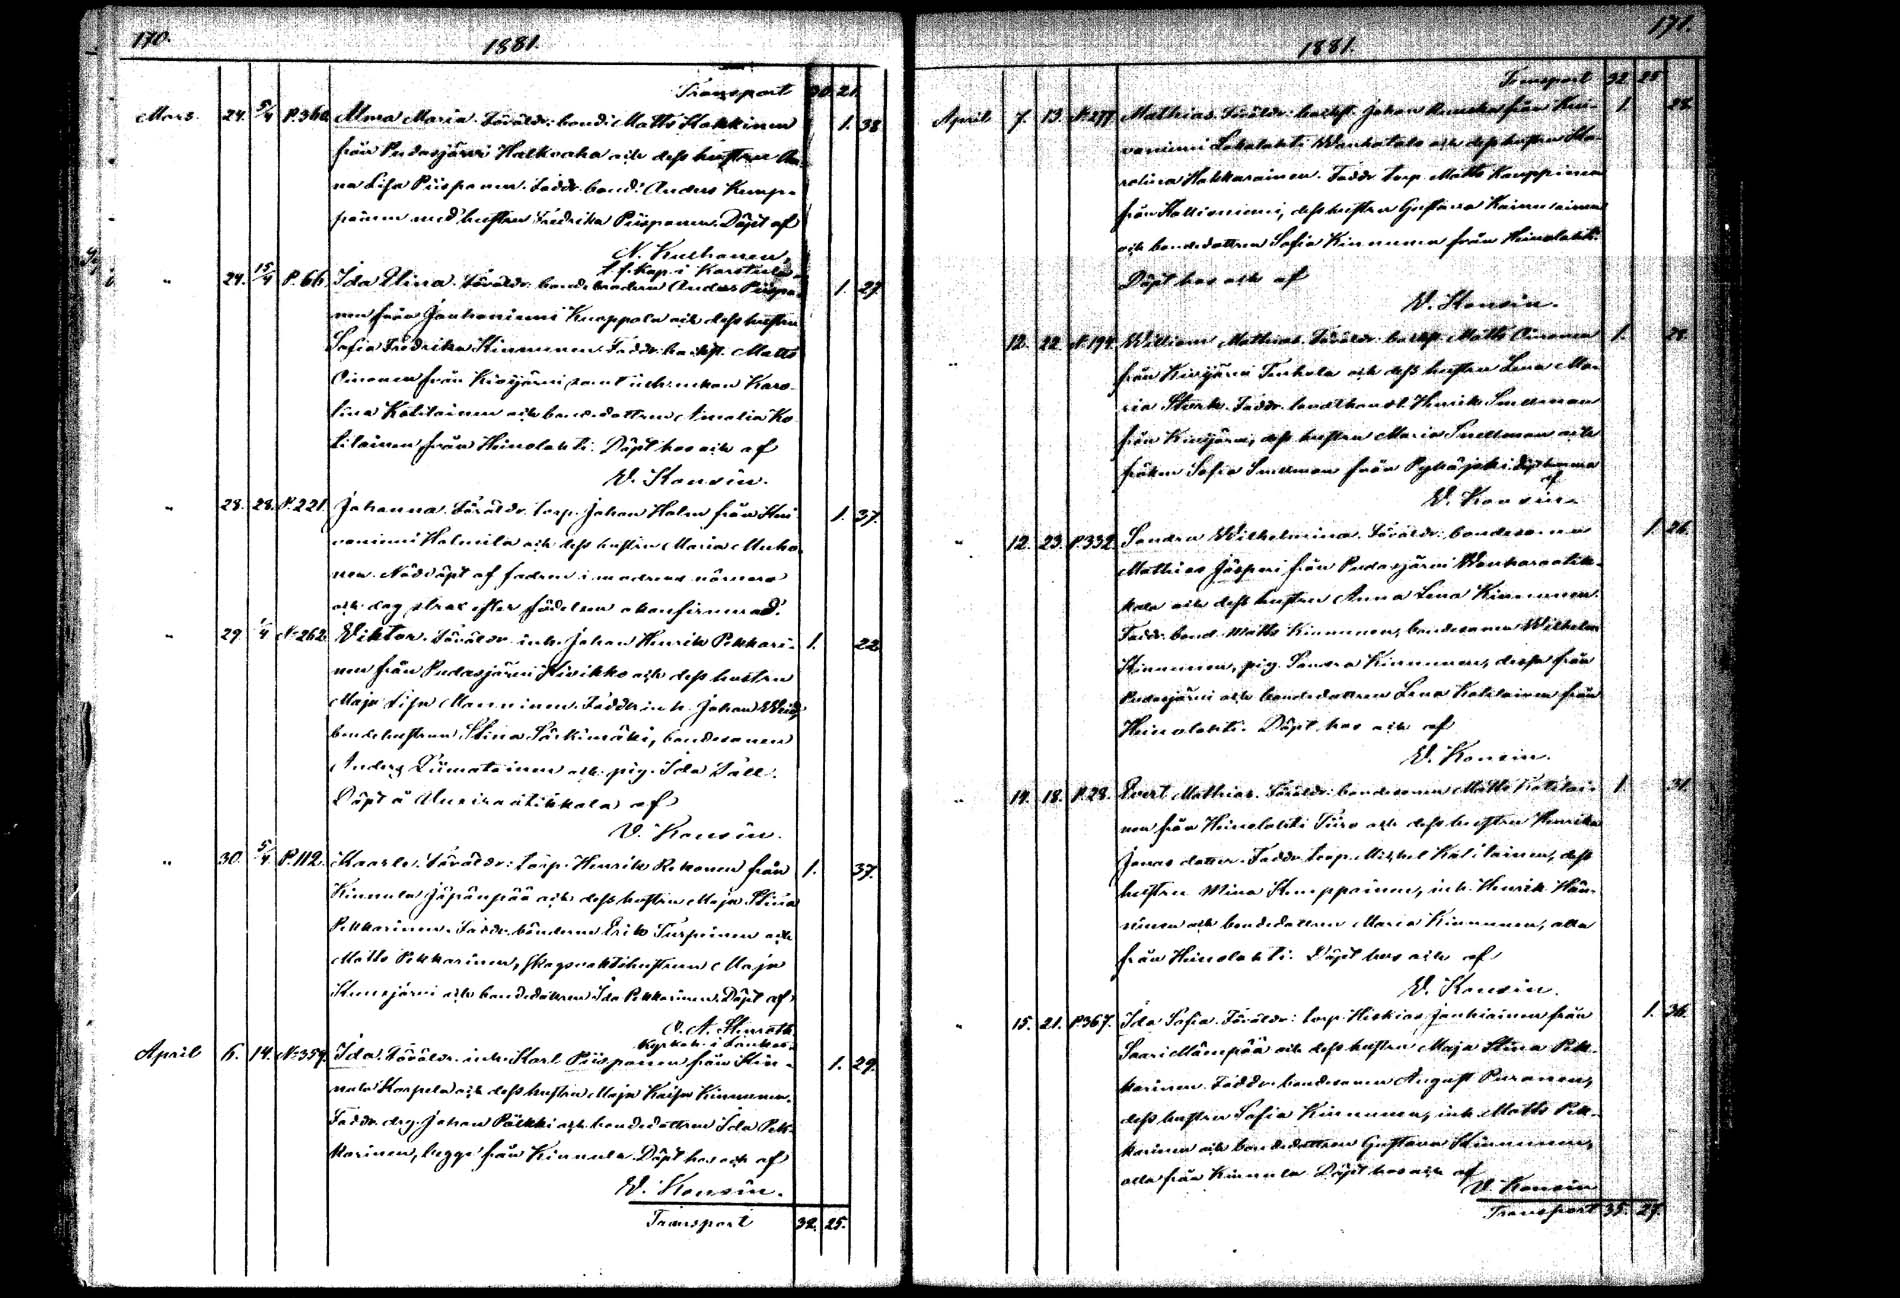 170.
1881.
Transport 30. 21.
Mars. 24. 5/4 P.360. Alma Maria. Föräldr: bond. Matts Hakkinen 1. 38
från Pudasjärvi Halkoaho och dess hustru An-
na Lisa Piispanen. Faddr. bond. Anders Kemp-
painen med hustru Fredrika Piispanen. Döpt af
N. Kurhonen,
t.f. Kap. i Karstula.
" 24. 15/4 P.66. Ida Elina. Föräldr: bondebrodern Anders Piispa- 1. 27.
nen från Jouhoniemi Knoppola och dess hustru
Sofia Fredrika Kinnunen. Faddr. Matts
Oinonen från Kivijärvi samt enkan Karo-
lina Kotilainen och bondedottren Amalia Ko-
tilainen från Heinolahti. Döpt hos och af
V. Konsin.
" 28. 28. P.221. Johanna. Föräldr. torp. Johan Holm från Kui- 1. 37.
vaniemi Holmila och dess hustru Maria Muho-
nen. Nöddöpt af fadren i modrens närvaro
och dog strax efter födelsen okonfirmerad.
" 29. 1/4 N:262. Viktor. Föräldr. inh. Johan Henrik Pekkari- 1. 22
nen från Pudasjärvi Kivikko och dess hustru
Maja Lisa Manninen. Faddr. inh. Johan
bondehustrun Stina Särkimäki, bondesonen
Anders Liimatainen och pig. Ida Säll.
Döpt å af
V. Konsin.
" 30. 5/4 P.112. Kaarle. Föräldr: torp. Henrik Rekonen från 1. 37.
Kinnula Jäpänpää och dess hustru Maja Stina
Pekkarinen. Faddr. bönderne Erik Turpeinen och
Matts Pekkarinen, skogsvaktshustrun Maja
och bondedottren Ida Pekkarinen. Döpt af
Kyrkoh. i
April 6. 14. N:359. Ida. Föräldr. inh. Karl Piispanen från Kin- 1. 29.
nula Korpela och dess hustru Maja Kaisa Kinnunen.
Faddr. drg. Johan Pölkki och bondedottren Ida Pek-
karinen, begge från Kinnula. Döpt hos och af
V. Konsin.
Transport 32. 25.
171.
1881.
Transport 32. 25
April 7. 13. N:277. Mathias. Föräldr. Johan från Kui- 1. 28.
vaniemi Lokolahti och dess hustru Ka-
rolina Hakkarainen. Faddr. torp. Matts Kauppinen
från Kallioniemi, dess hustru Gustava Kainulainen
och bondedottren Sofia Kinnunen från Heinolahti.
Döpt hos och af
V. Konsin.
" 12. 22. N:194. William Mathias. Föräldr. Matts Oinonen 1. 28.
från Kivijärvi Tenhola och dess hustru Lena Ma-
ria Stark. Faddr. landthandl. Henrik Snellman
från Kivijärvi, dess hustru Maria Snellman och
fröken Sofia Snellman från Pyhäjoki. Döpt hemma
af
V. Konsin.
" 12. 23. P.332. Sandra Wilhelmina. Föräldr. bondesonen 1. 26.
Mathias Jäsperi från Pudasjärvi
och dess hustru Anna Lena Kinnunen.
Faddr. bond. Matts Kinnunen, bondesonen Wilhelm
Kinnunen, pig. Sandra Kinnunen, dessa från
Pudasjärvi och bondedottren Lena Kotilainen från
Heinolahti. Döpt hos och af
V. Konsin.
" 14. 18. P.28. Evert Mathias. Föräldr. bondesonen Matts Kotilai- 1. 31.
nen från Heinolahti och dess hustru Henrika
Jonasdotter. Faddr. torp. Mickel Kotilainen, dess
hustru Mina Kemppainen, inh. Henrik Hän-
ninen och bondedottren Maria Kinnunen, alla
från Heinolahti. Döpt hos och af
V. Konsin.
" 15. 21. P.367. Ida Sofia. Föräldr: torp. Hiskias Janhiainen från 1. 36.
Saari Mämpää och dess hustru Maja Stina Pek-
karinen. Faddr. bondesonen August Puranen,
dess hustru Sofia Kinnunen, inh. Matts Pek-
karinen och bondedottren Gustava Kinnunen,
alla från Kinnula. Döpt hos och af
V. Konsin
Transport 35. 27.